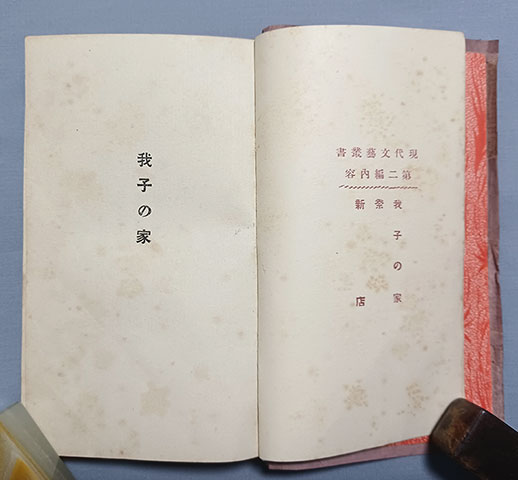 現代文藝叢書
第二編内容
我子の家
新店
我子の家